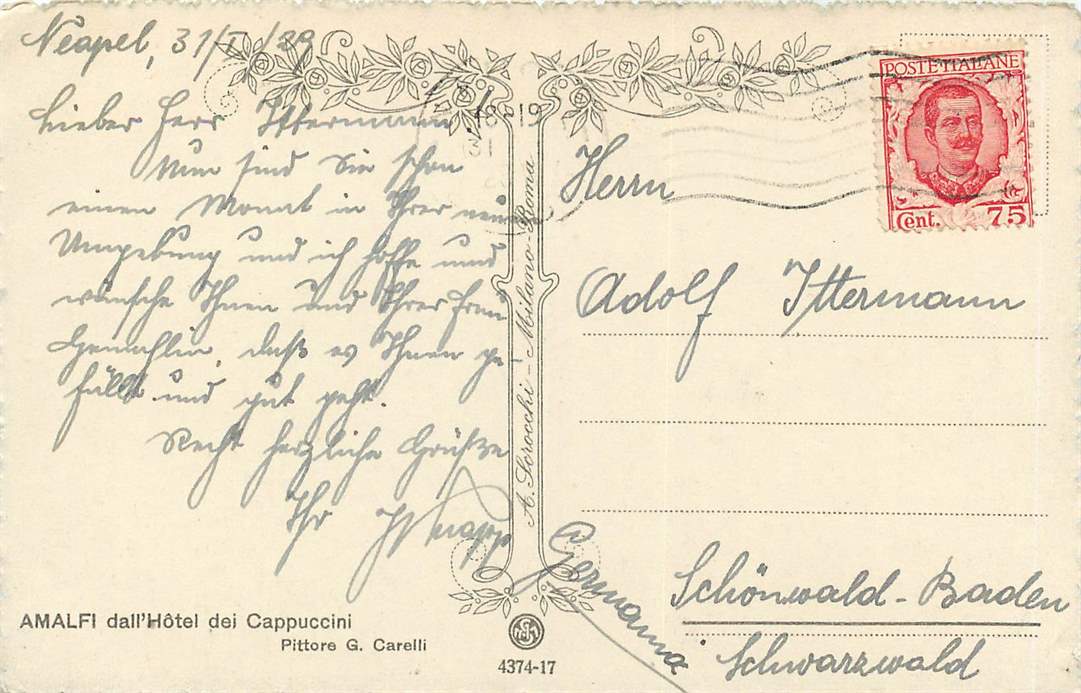 Neapel, 31/I/29
Lieber Herr Ittermann
Nun sind Sie schon
einen Monat in Ihrer neuen
Umgebung und ich hoffe und
wünsche Ihnen und Ihrer Frau
Gemahlin, daß es Ihnen ge-
fällt und gut geht.
Recht herzliche Grüße
Ihr Knapp
AMALFI dall'Hôtel dei Cappuccini
Pittore G. Carelli
A. Scrocchi - Milano-Roma
4374-17
POSTE ITALIANE
Cent. 75
18-19
Herrn
Adolf Ittermann
Schönwald-Baden
Schwarzwald
Germania